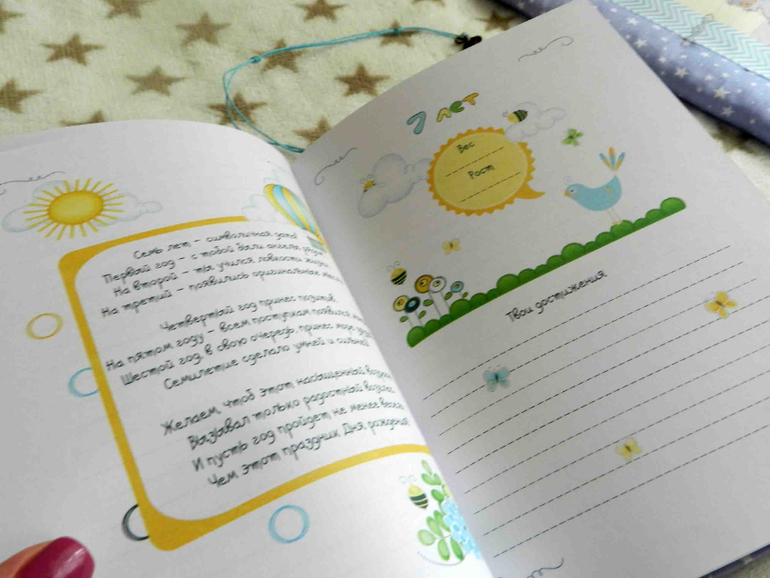 Семь лет – символичная дата!
Первый год – с тобой были ангелы
На второй – ты учился ловкости
На третий – появились оригинальные
Четвертый год принес позитив,
На пятом году – всем поступкам появился
Шестой год, в свою очередь, принес море
Семилетие сделало умней и сильней
Желаем, чтоб этот насыщенный
Вызывал только радостный
И пусть год пройдет не менее
Чем этот праздник Дня рождения!
7 лет
Вес
Рост
Твои достижения